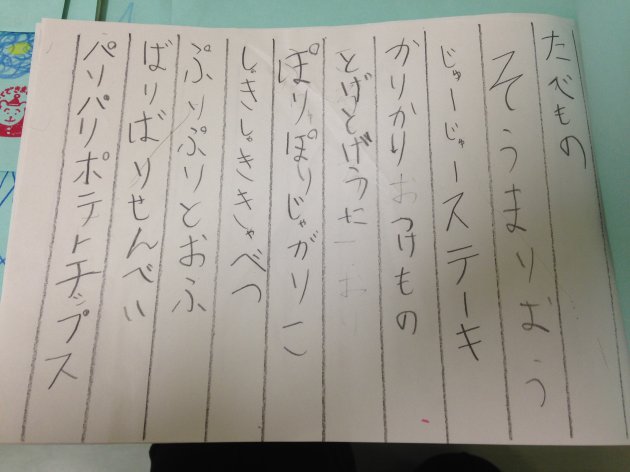 たべもの
そうまりおう
じゅーじゅーステーキ
かりかりおつけもの
とげとげうに
ぽりぽりじゃがりこ
しゃきしゃききゃべつ
ぷりぷりとおふ
ばりばりせんべい
パリパリポテトチップス